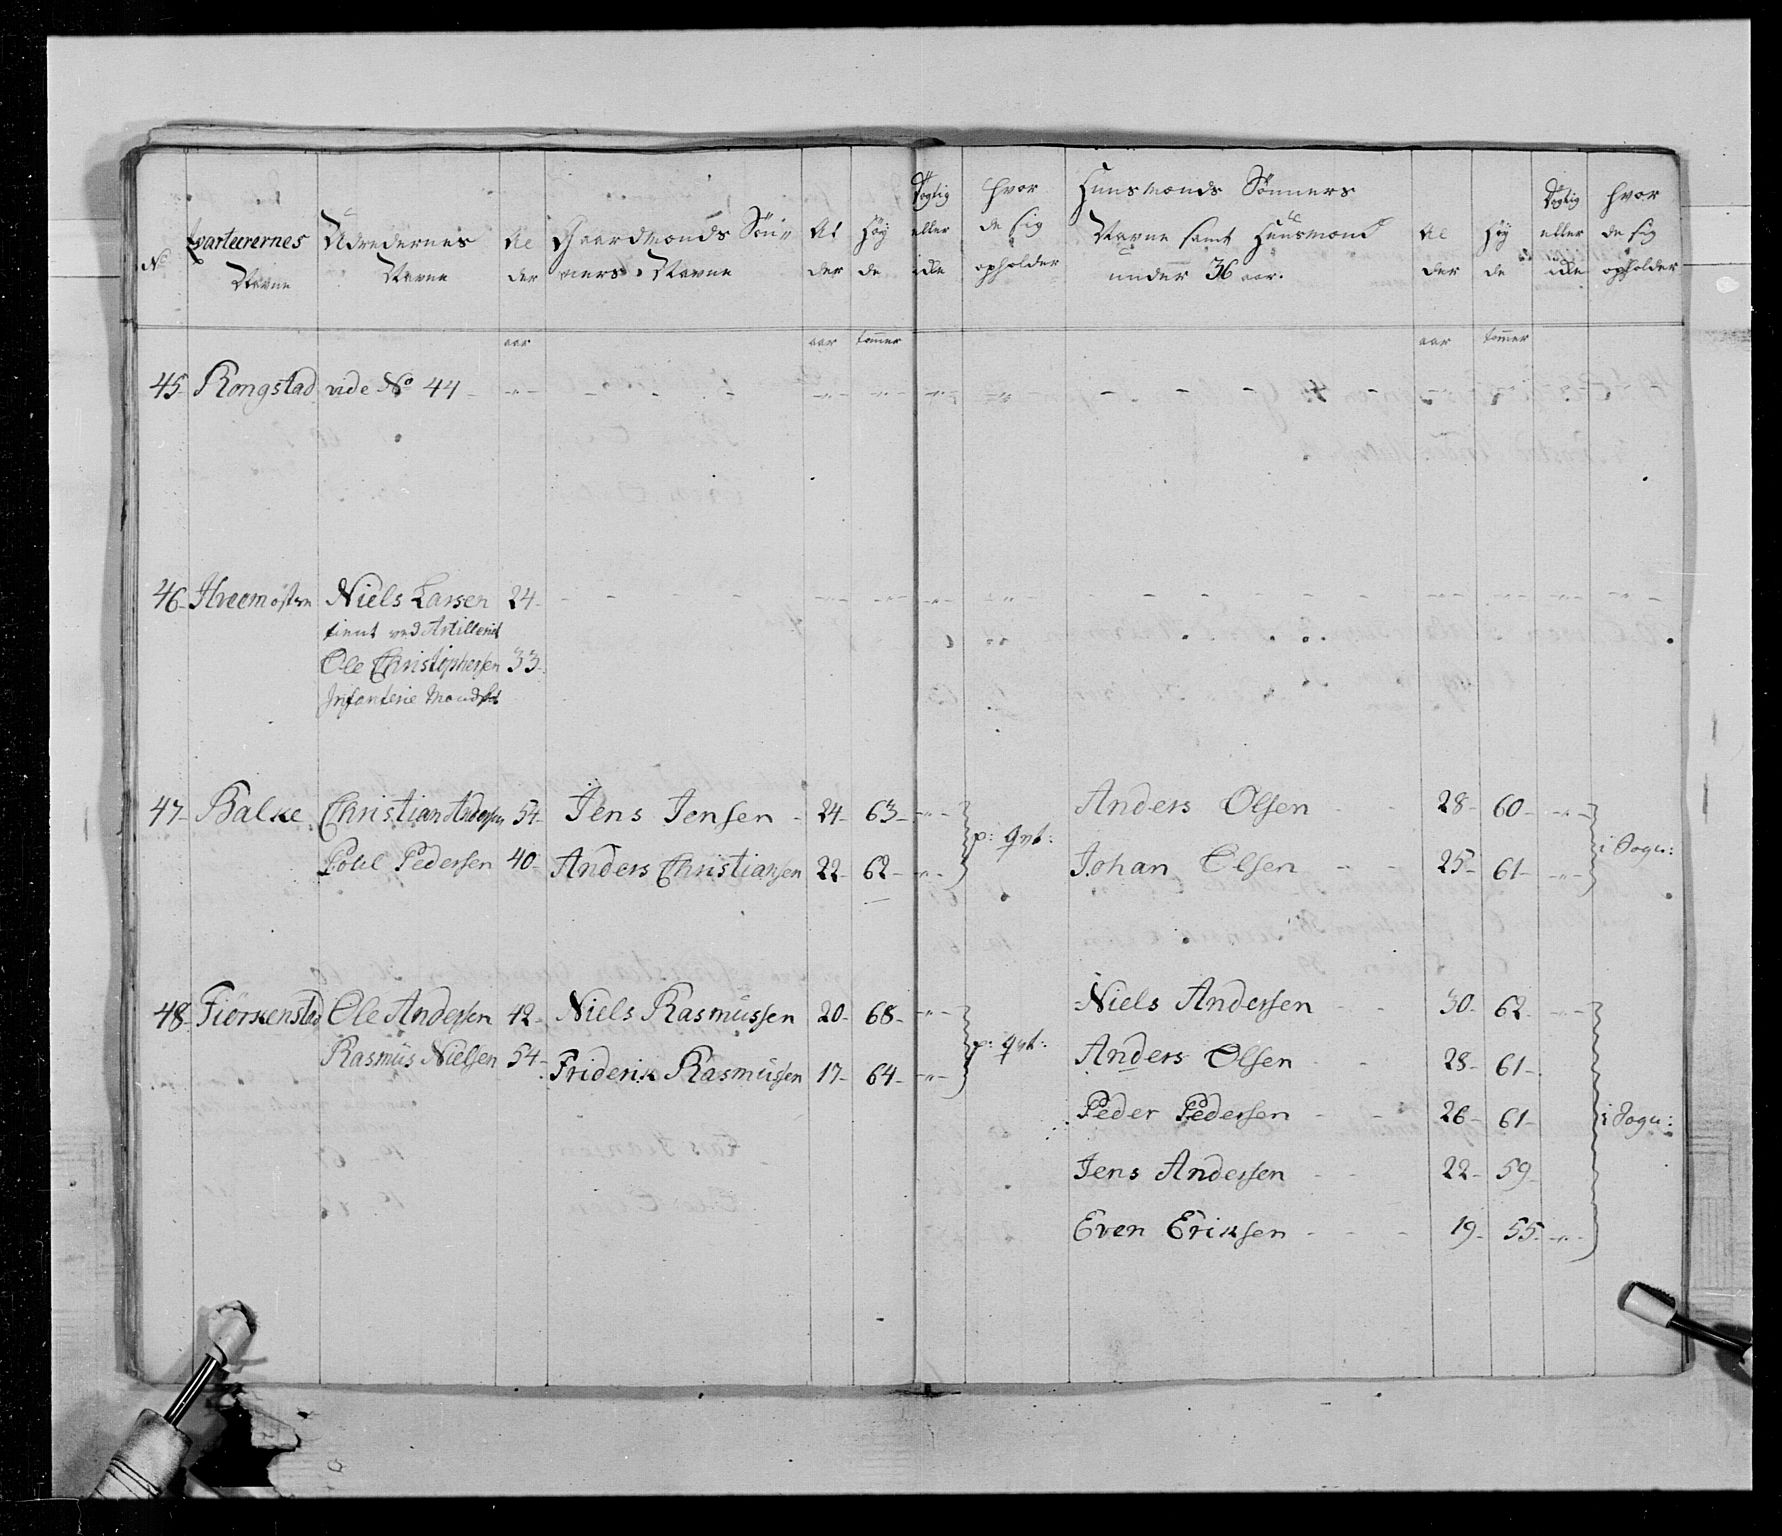 No
Qvarteerernes Navne
Udredernes Navne
Al der
Gaardmands Sön ners Navne
Al der
Höy de
Dygtig eller icke
hvor de sig opholder
Huusmands Sönners Navne samt Huusmænd under 36 aar.
Al der
Höy de
Dygtig eller icke
hvor de sig opholder
aar aar tommer aar tommer
45 Rongstad vide No 44
46 Hveem østre Niels Larsen 24
tient ved Artilleriet
Ole Christophersen 33
Infanterie Mondsk
47 Balke Christian Andersen 54 Jens Jensen 24 63 Anders Olsen 28 60
p: Qvt: i Sogn:
Povel Pedersen 40 Anders Christiansen 22 62 Johan Olsen 25 61
48 Fiörkenstad Ole Andersen 42 Niels Rasmussen 20 68 Niels Andersen 30 62
Rasmus Nielsen 54 Friderik Rasmussen 17 64 p: Qvt: Anders Olsen 28 61
Peder Pedersen 26 61 i Sogn:
Jens Andersen 22 59
Even Eriksen 19 55